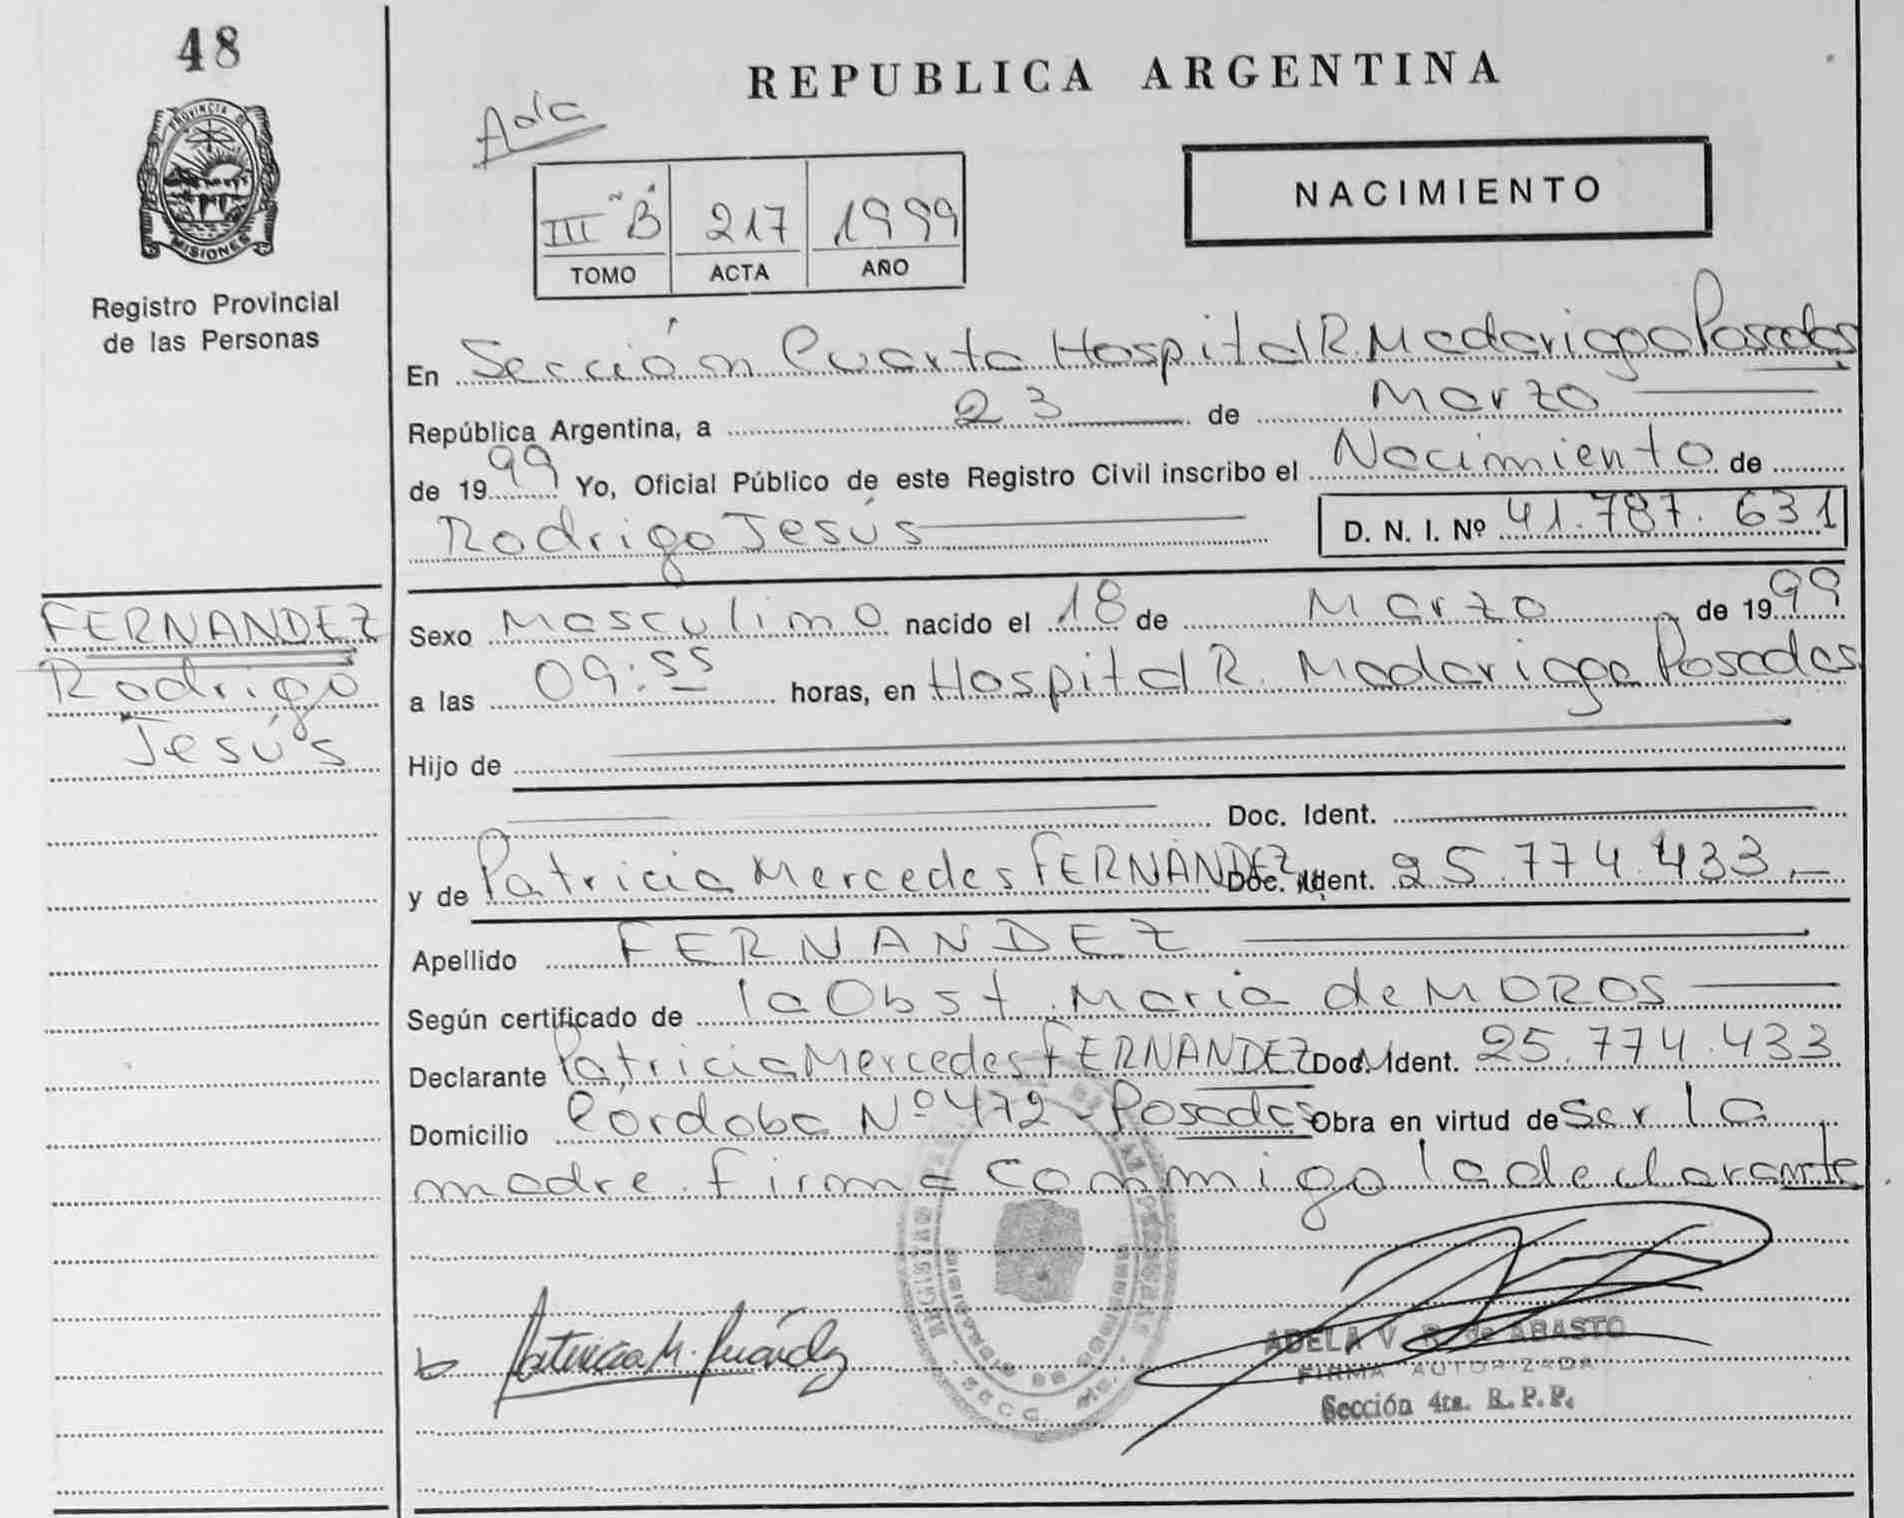 48
PROVINCIA DE
MISIONES
Registro Provincial
de las Personas
REPUBLICA ARGENTINA
NACIMIENTO
III B 217 1999
TOMO ACTA AÑO
En Sección Cuarta Hospital R. Madariaga Posadas
República Argentina, a 23 de Marzo
de 1999 Yo, Oficial Público de este Registro Civil inscribo el Nacimiento de
Rodrigo Jesús D. N. I. Nº 41.787.631
FERNANDEZ
Rodrigo
Jesús
Sexo Masculino nacido el 18 de Marzo de 1999
a las 09:55 horas, en Hospital R. Madariaga Posadas
Hijo de
Doc. Ident.
y de Patricia Mercedes FERNÁNDEZ Doc. Ident. 25.774.433
Apellido FERNANDEZ
Según certificado de la Obst. Maria de MOROS
Declarante Patricia Mercedes FERNANDEZ Doc. Ident. 25.774.433
Domicilio Córdoba Nº 472 - Posadas Obra en virtud de Ser la
madre. firma conmigo la declarante
Patricia M. Fernández
ADELA V. R. de ABASTO
FIRMA AUTORIZADA
Sección 4ta. R. P. P.